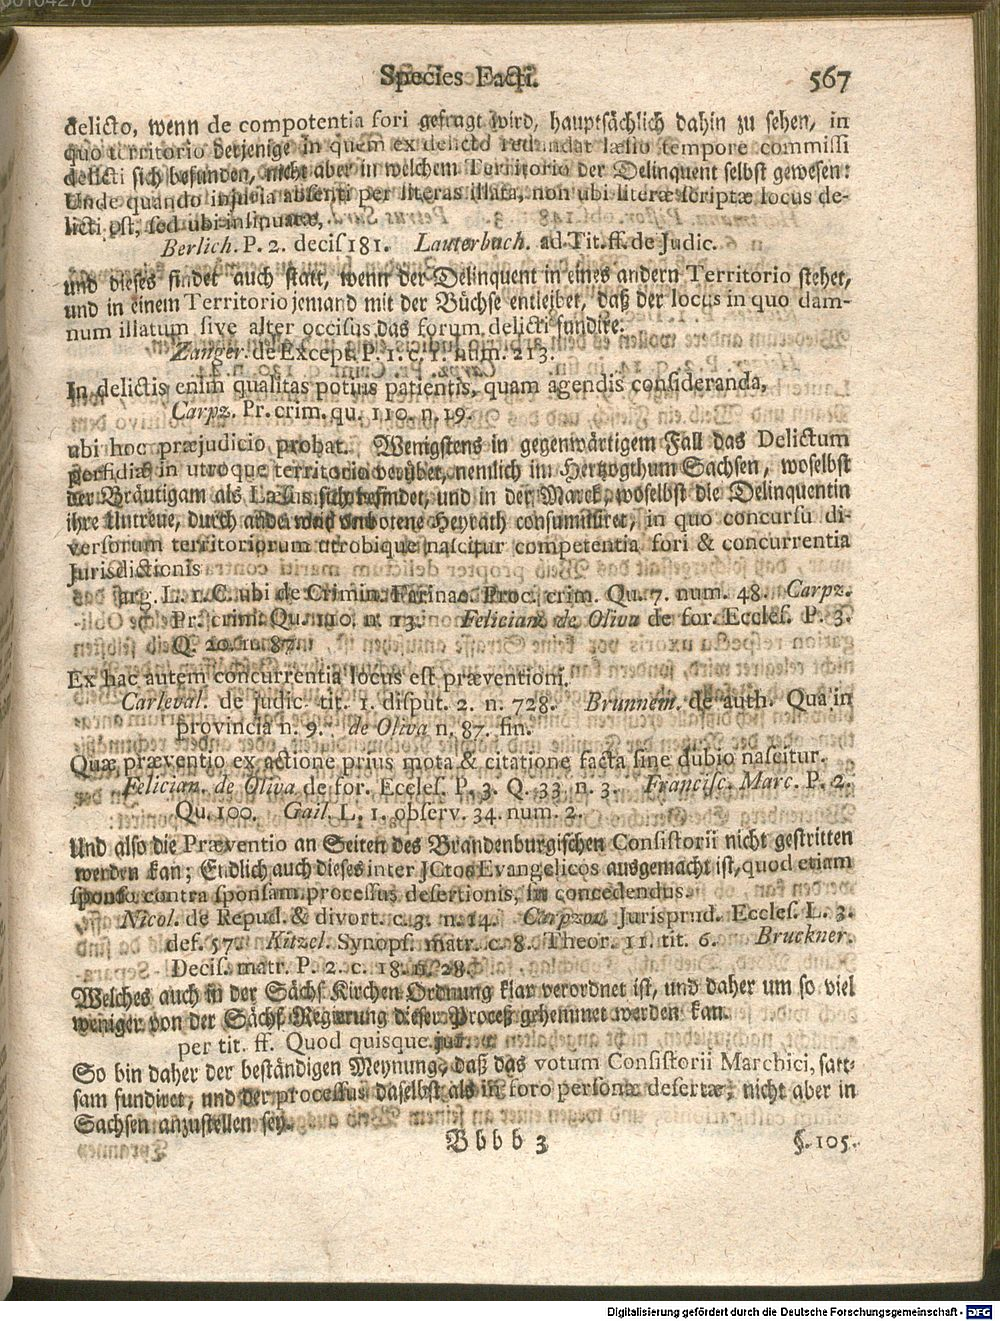 Species Facti. 567
delicto, wenn de compotentia fori gefragt wird, hauptsächlich dahin zu sehen, in
quo territorio derjenige in quem ex delicto redundat læsio tempore commissi
delicti sich befunden, nicht aber in welchem Territorio der Delinquent selbst gewesen:
Unde quando injuria absenti per literas illata, non ubi literæ scriptæ locus de-
licti est, sed ubi insinuatæ,
Berlich. P. 2. decis 181. Lauterbach. ad Tit. ff. de Judic.
und dieses findet auch statt, wenn der Delinquent in eines andern Territorio stehet,
und in einem Territorio jemand mit der Büchse entleibet, daß der locus in quo dam-
num illatum sive alter occisus das forum delicti fundire.
Zanger. de Except. P. 1. c. 1. num. 213.
In delictis enim qualitas potius patientis, quam agendis consideranda,
Carpz. Pr. crim. qu. 110. n. 19.
ubi hoc præjudicio probat. Wenigstens in gegenwärtigem Fall das Delictum
perfidiæ in utroque territorio verübet, nemlich im Hertzogthum Sachsen, woselbst
der Bräutigam als Læsus sich befindet, und in der Marck, woselbst die Delinquentin
ihre Untreue, durch anderweid verbotene Heyrath consummiret, in quo concursu di-
versorum territoriorum utrobique nascitur competentia fori & concurrentia
Jurisdictionis
arg. L. 1. C. ubi de Crimin. Farinac. Proc. crim. Qu. 7. num. 48. Carpz.
Pr. crim. Qu. 110. n. 13. Felician. de Oliva de for. Eccles. P. 3.
Q. 20. n. 87.
Ex hac autem concurrentia locus est præventioni.
Carleval. de judic. tit. 1. disput. 2. n. 728. Brunnem. de auth. Qua in
provincia n. 9. de Oliva n. 87. fin.
Quæ præventio ex actione prius mota & citatione facta sine dubio nascitur.
Felician. de Oliva de for. Eccles. P. 3. Q. 33. n. 3. Francisc. Marc. P. 2.
Qu. 100. Gail. L. 1. observ. 34. num. 2.
Und also die Præventio an Seiten des Brandenburgischen Consistorii nicht gestritten
werden kan; Endlich auch dieses inter JCtos Evangelicos ausgemacht ist, quod etiam
sponso contra sponsam processus desertionis, sit concedendus.
Nicol. de Repud. & divort. c. 3. n. 14. Carpzou. Jurisprud. Eccles. L. 3.
def. 57. Kitzel. Synops. matr. c. 8. Theor. 11. tit. 6. Bruckner.
Decis. matr. P. 2. c. 18. n. 28.
Welches auch in der Sächs. Kirchen-Ordnung klar verordnet ist, und daher um so viel
weniger von der Sächs. Regierung dieser Proceß gehemmet werden kan.
per tit. ff. Quod quisque jur.
So bin daher der beständigen Meynung, daß das votum Consistorii Marchici, satt-
sam fundiret, und der processus daselbst als in foro personæ desertæ, nicht aber in
Sachsen anzustellen sey.
Bbbb 3 §. 105.
Digitalisierung gefördert durch die Deutsche Forschungsgemeinschaft - DFG